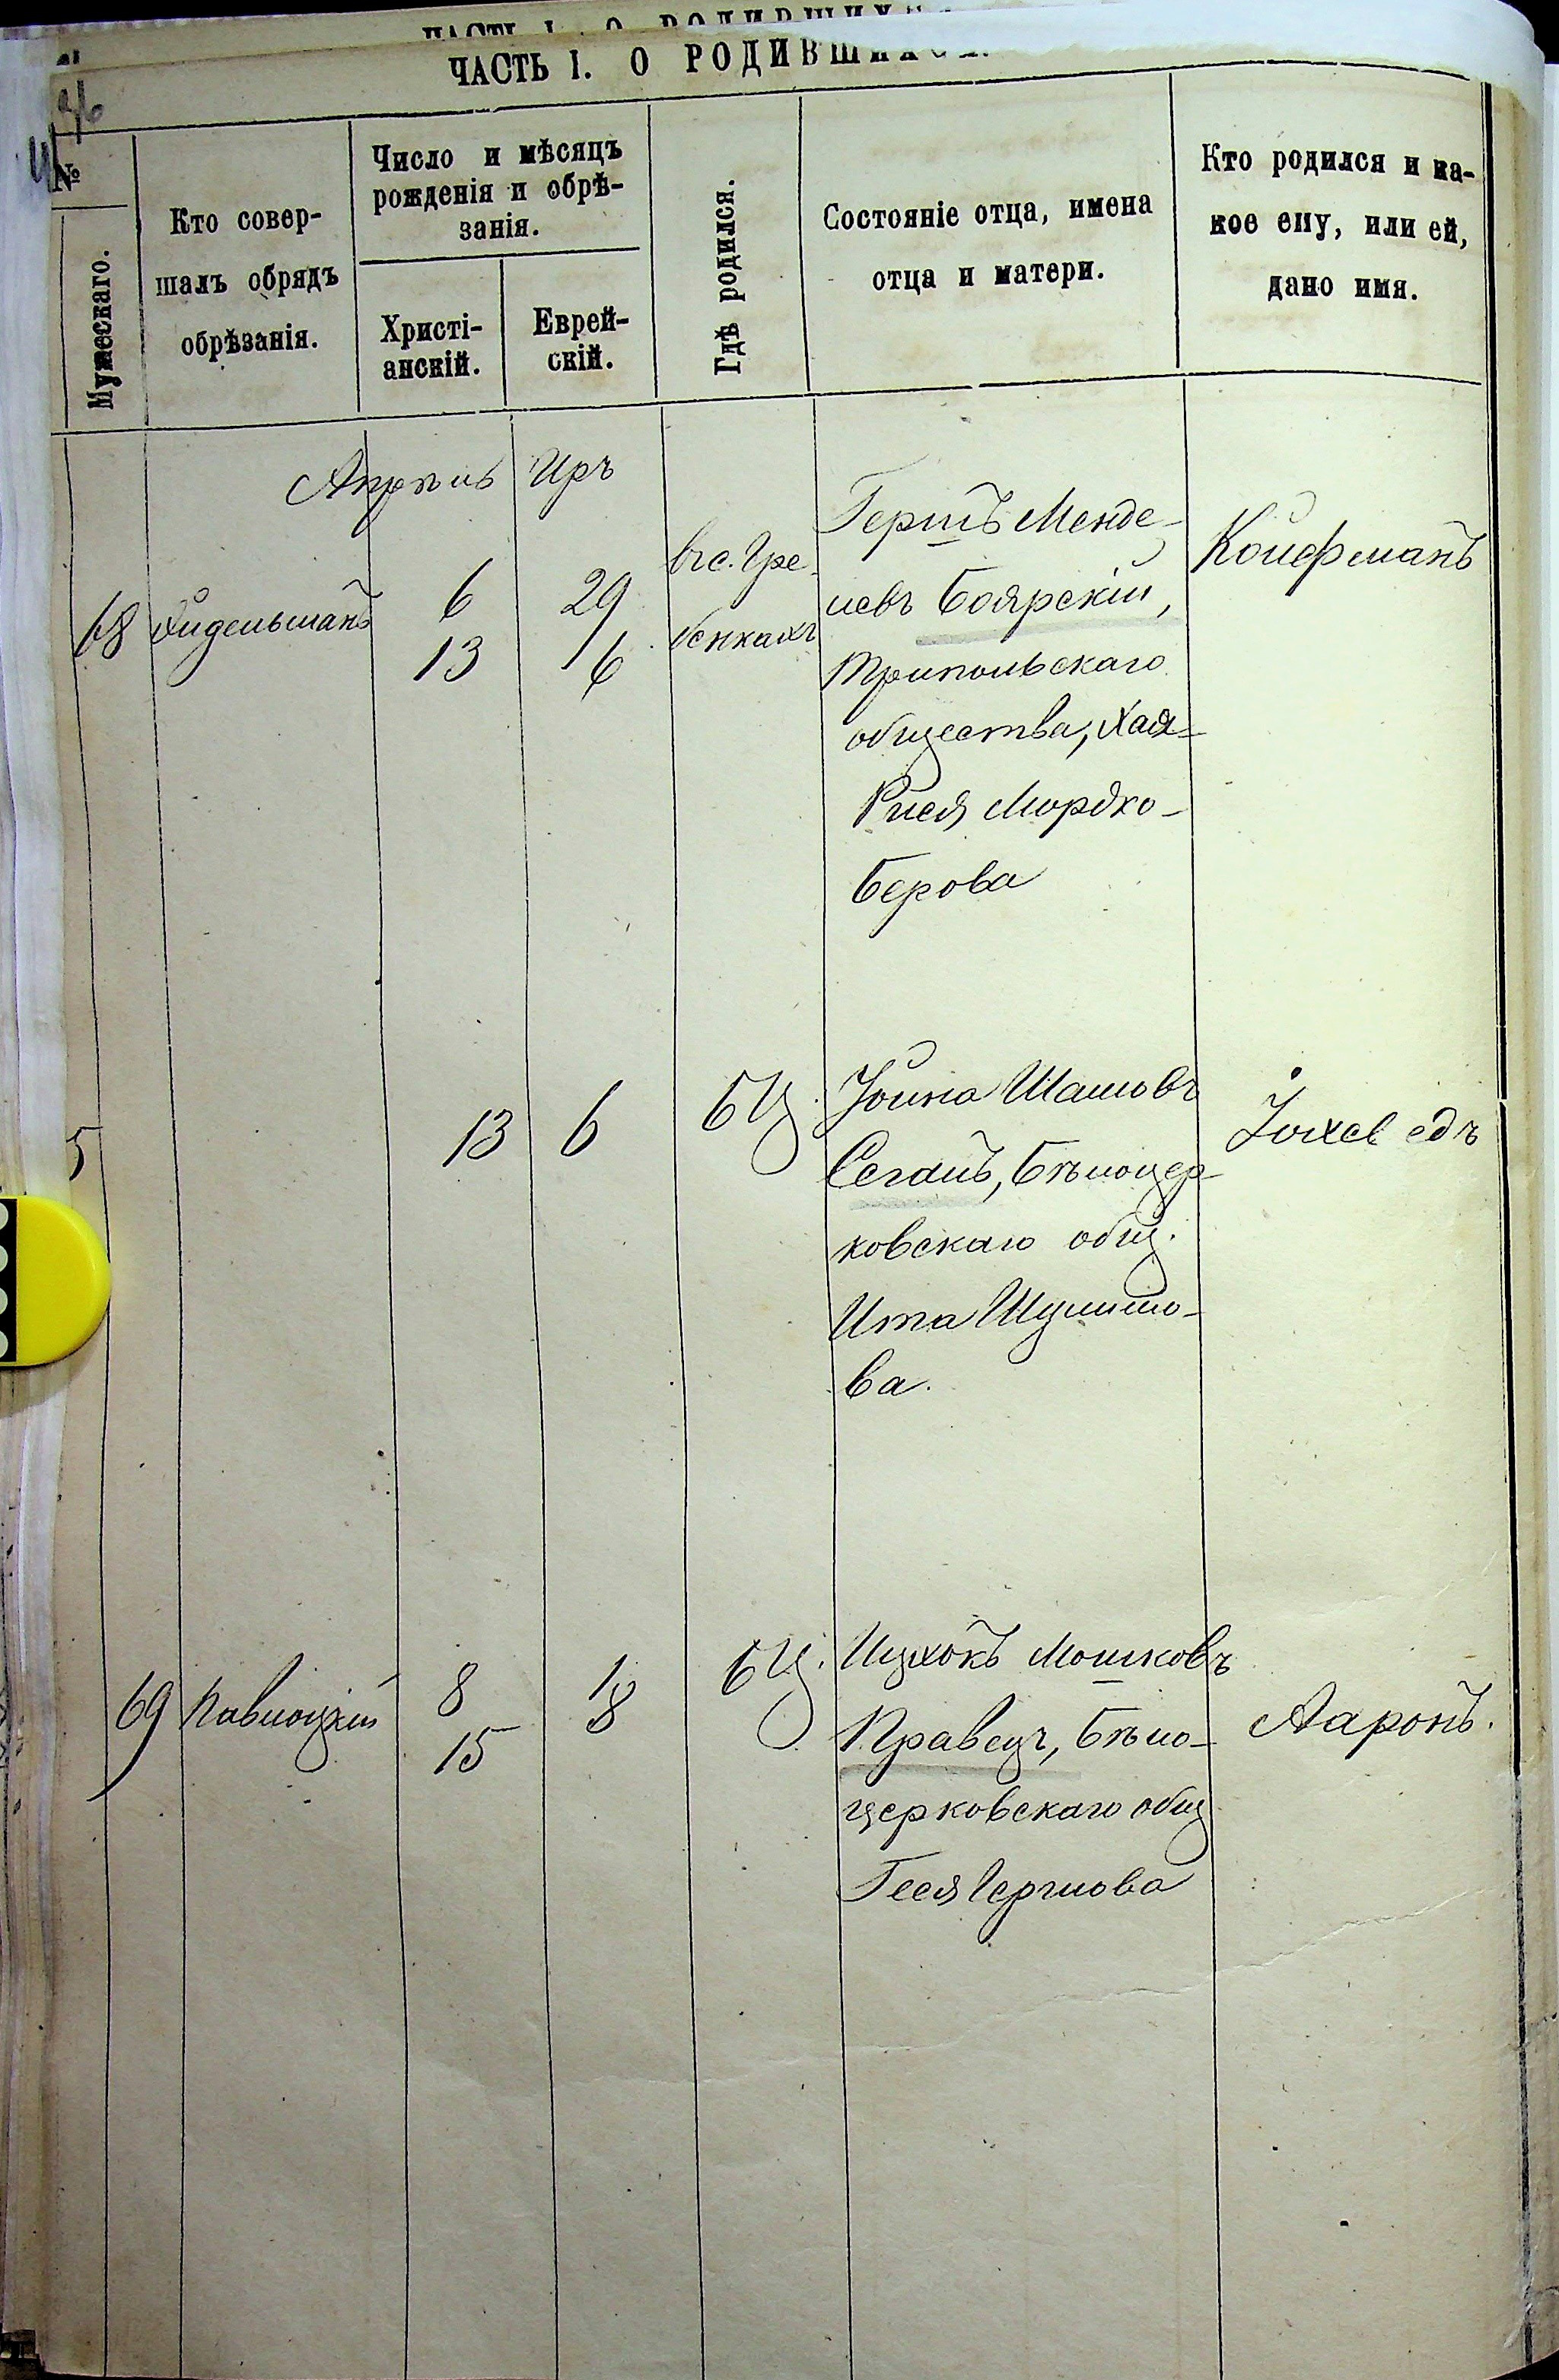 ЧАСТЬ I. О РОДИВШИХСЯ.
№
Мужескаго.
Кто совер-
шалъ обрядъ
обрѣзанія.
Число и мѣсяцъ
рожденія и обрѣ-
занія.
Христі-
анскій.
Еврей-
скій.
Гдѣ родился.
Состояніе отца, имена
отца и матери.
Кто родился и ка-
кое ему, или ей,
дано имя.
Апрѣль Иръ
68
6 29
13 6
въ с. Гре-
бенкахъ
Гершъ Менде-
левъ Боярскій,
Трипольскаго
общества, Хая-
Рися Мордко-
Берова
Койфманъ
5 13 6 БЦ.
Іойна
Сегалъ, Бѣлоцер-
ковскаго общ.
Ита Шулимо-
ва.
Іохеведъ
69 Павлоцкій
8 1
15 8
БЦ.
Ицхокъ Мошковъ
Кравецъ, Бѣло-
церковскаго общ
Геся Гершова
Ааронъ.